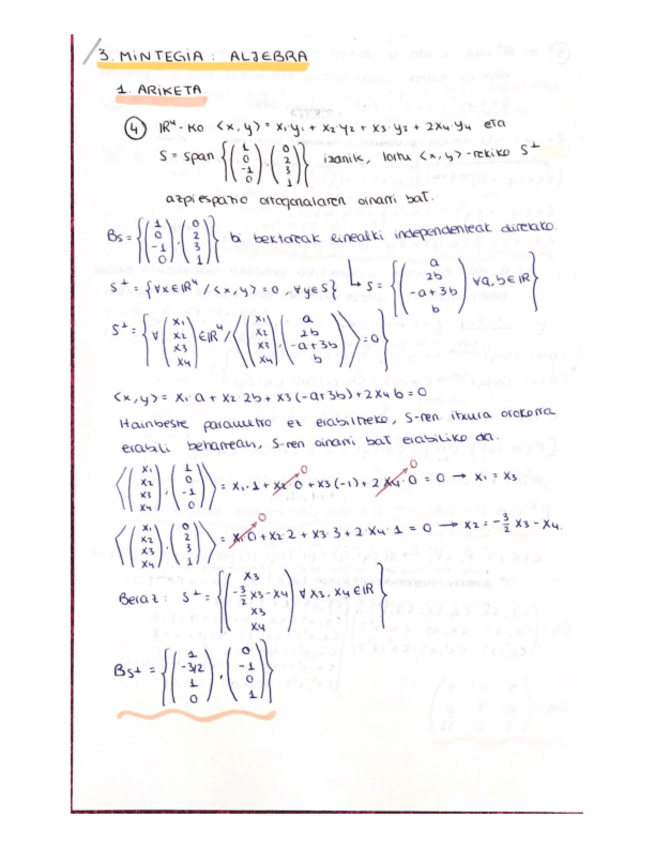 3. MINTEGIA : ALJEBRA
1. ARIKETA
④ IR⁴-ko <x,y> = x₁y₁ + x₂y₂ + x₃y₃ + 2x₄y₄ eta
S = span {(1 0 -1 0), (0 2 3 1)} izanik, lortu <x,y>-rekiko S⊥
azpiespazio ortogonalaren oinarri bat.
Bs = {(1 0 -1 0), (0 2 3 1)} : bi bektoreak linealki independenteak direlako.
S⊥ = {∀x∈IR⁴ / <x,y> = 0, ∀y∈S} ↳ S = {(a 2b -a+3b b) ∀a,b∈IR}
S⊥ = {∀ (x₁ x₂ x₃ x₄) ∈IR⁴ / <(x₁ x₂ x₃ x₄), (a 2b -a+3b b)> = 0}
<x,y> = x₁·a + x₂·2b + x₃(-a+3b) + 2x₄b = 0
Hainbeste parametro ez erabiltzeko, S-ren itxura orokorra
erabili beharrean, S-ren oinarri bat erabiliko da.
<(x₁ x₂ x₃ x₄), (1 0 -1 0)> = x₁·1 + x₂·0 + x₃(-1) + 2·x₄·0 = 0 → x₁ = x₃ 0 0
<(x₁ x₂ x₃ x₄), (0 2 3 1)> = x₁·0 + x₂·2 + x₃·3 + 2·x₄·1 = 0 → x₂ = -3/2 x₃ - x₄. 0
Beraz : S⊥ = {(x₃ -3/2 x₃-x₄ x₃ x₄) ∀x₃, x₄∈IR}
Bs⊥ = {(1 -3/2 1 0), (0 -1 0 1)}